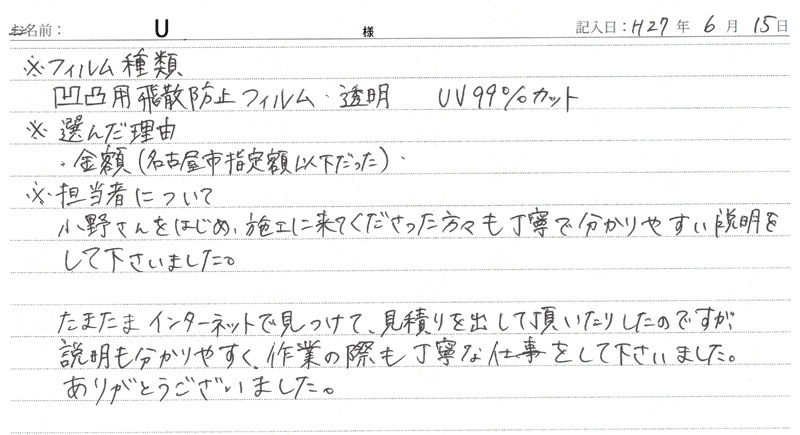 お名前： U 様 記入日：H27年 6月 15日
※フィルム種類
凹凸用飛散防止フィルム・透明 UV99%カット
※選んだ理由
・金額(名古屋市指定額以下だった)・
※担当者について
小野さんをはじめ、施工に来てくださった方々も丁寧で分かりやすい説明を
して下さいました。
たまたまインターネットで見つけて、見積りを出して頂いたりしたのですが、
説明も分かりやすく、作業の際も丁寧な仕事をして下さいました。
ありがとうございました。